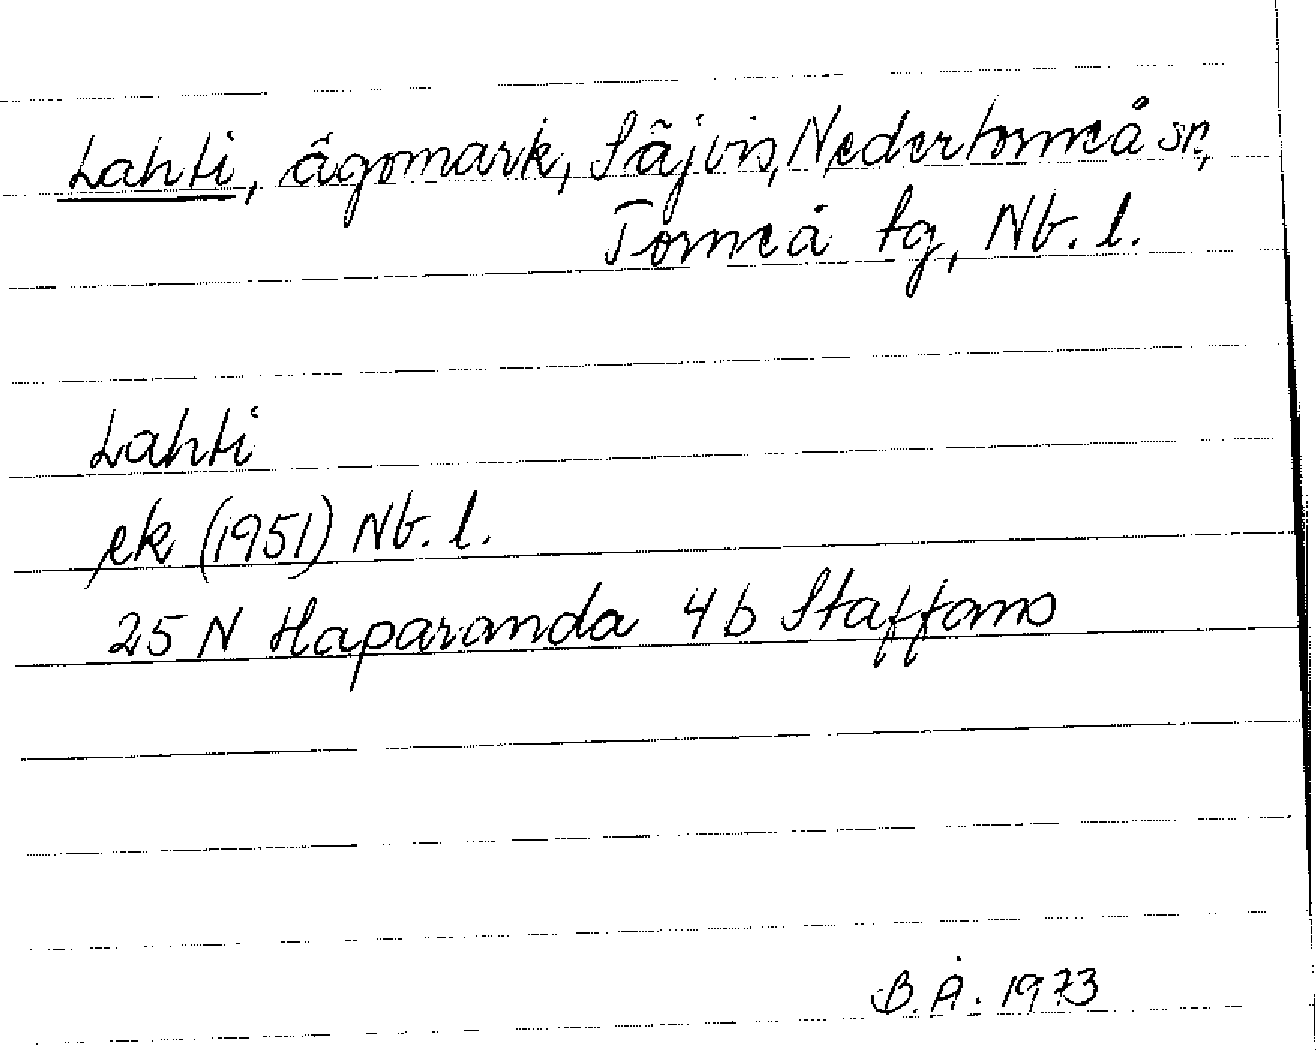 Lahti, ägomark, Säjvis, Nedertorneå sn,
Torneå tg, Nb. l.
Lahti
ek (1951) Nb. l.
25 N Haparanda 4 b Staffans
B.Å. 1973